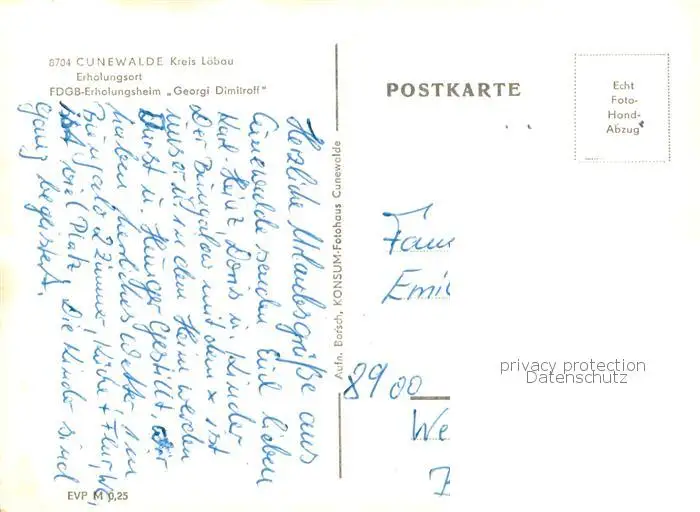 8704 CUNEWALDE Kreis Löbau
Erholungsort
FDGB-Erholungsheim „Georgi Dimitroff"
Herzliche Urlaubsgrüße aus
Cunewalde senden Euch lieben
Karl-Heinz, Doris u. Kinder
Der Bungalow mit dem x ist
unser u. in dem Heim werden
Durst u. Hunger gestillt, wir
haben herrliches Wetter. Im
Bungalo 2 Zimmer, Küche + Flur, Wc,
ist viel Platz. Die Kinder sind
ganz begeistert.
EVP M 0,25
Aufn. Borsch, KONSUM-Fotohaus Cunewalde
POSTKARTE
Echt
Foto-
Hand-
Abzug
Fam
Emil
8900
We
Z
privacy protection
Datenschutz